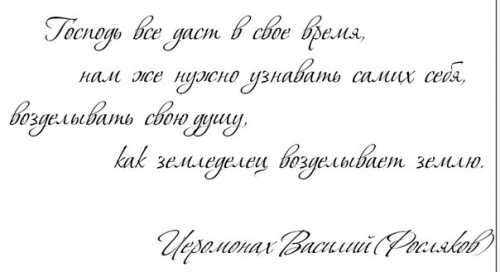 Господь все даст в свое время,
нам же нужно узнавать самих себя,
возделывать свою душу,
как земледелец возделывает землю.
Иеромонах Василий (Росляков)